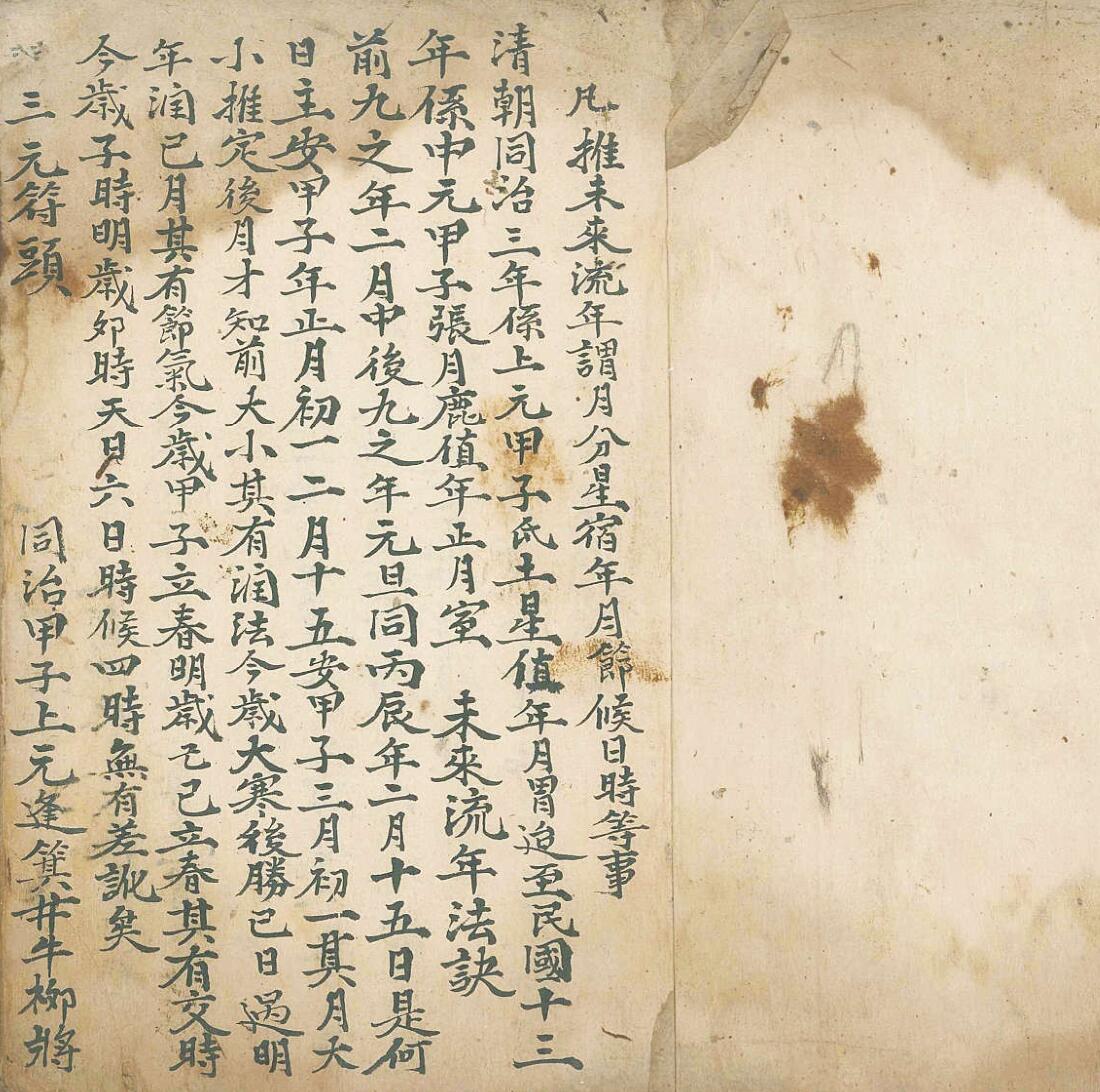 凡推未來流年謂月分星宿年月節候日時等事
清朝同治三年係上元甲子氐土星值年月胃迨至民國十三
年係中元甲子張月鹿值年正月室 未來流年法訣
前九之年二月中後九之年元旦同丙辰年二月十五日是何
日主安甲子年正月初一二月十五安甲子三月初一其月大
小推定後月才知前大小其有潤法今歲大寒後勝已日過明
年潤已月其有節氣今歲甲子立春明歲乙已立春其有交時
今歲子時明歲夘時天日六日時候四時無有差訛矣
三元符頭 同治甲子上元逢箕井牛柳將